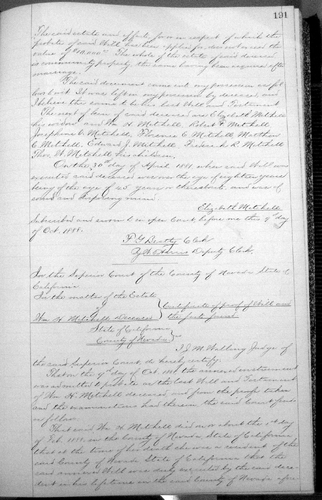 191
The said estate and effects for or in respect of which the
probate of said Will has been applied for do not exceed the
value of
The whole of the estate of said deceased
is community property the same having been acquired after
marriage.
Deceased did not
but it was left in my possession by deceased and
I believe the same to be his last Will and Testament
The next of kin of said deceased are Elizabeth Mitchell
his widow and Wm H. Mitchell, Robert F. Mitchell
Josephine C. Mitchell, Florence E. Mitchell, Matthew
C. Mitchell, Edward J. Mitchell, Frederick R. Mitchell
Thos. W. Mitchell, his children.
On the 30th day of April 1881 when said Will was
executed said deceased was over the age of eighteen years
being of the age of 48 years or thereabouts and was of
sound and disposing mind
Elizabeth Mitchell
Subscribed and sworn to in open Court before me this 9th day
of Oct. 1888.
F G Beatty Clerk
Deputy Clerk
In the Superior Court of the County of Nevada State of
California
In the matter of the Estate
of
Wm H. Mitchell deceased
Certificate of proof of Will and
the facts found
State of California
County of Nevada
I J. M. Walling Judge of
the said Superior Court, do hereby certify:
That on the 9th day of Oct 1888 the annexed instrument
was admitted to probate as the last Will and Testament
of Wm H. Mitchell deceased and from the proofs taken
and the examinations had therein the said Court finds
as follows:
That said Wm H. Mitchell died on or about the
of Feb. 1888 in the County of Nevada State of California
that at the time of his death he was a resident of the
said County of Nevada State of California that the
said annexed Will was duly executed by the said dece-
dent in his lifetime in the said County of Nevada